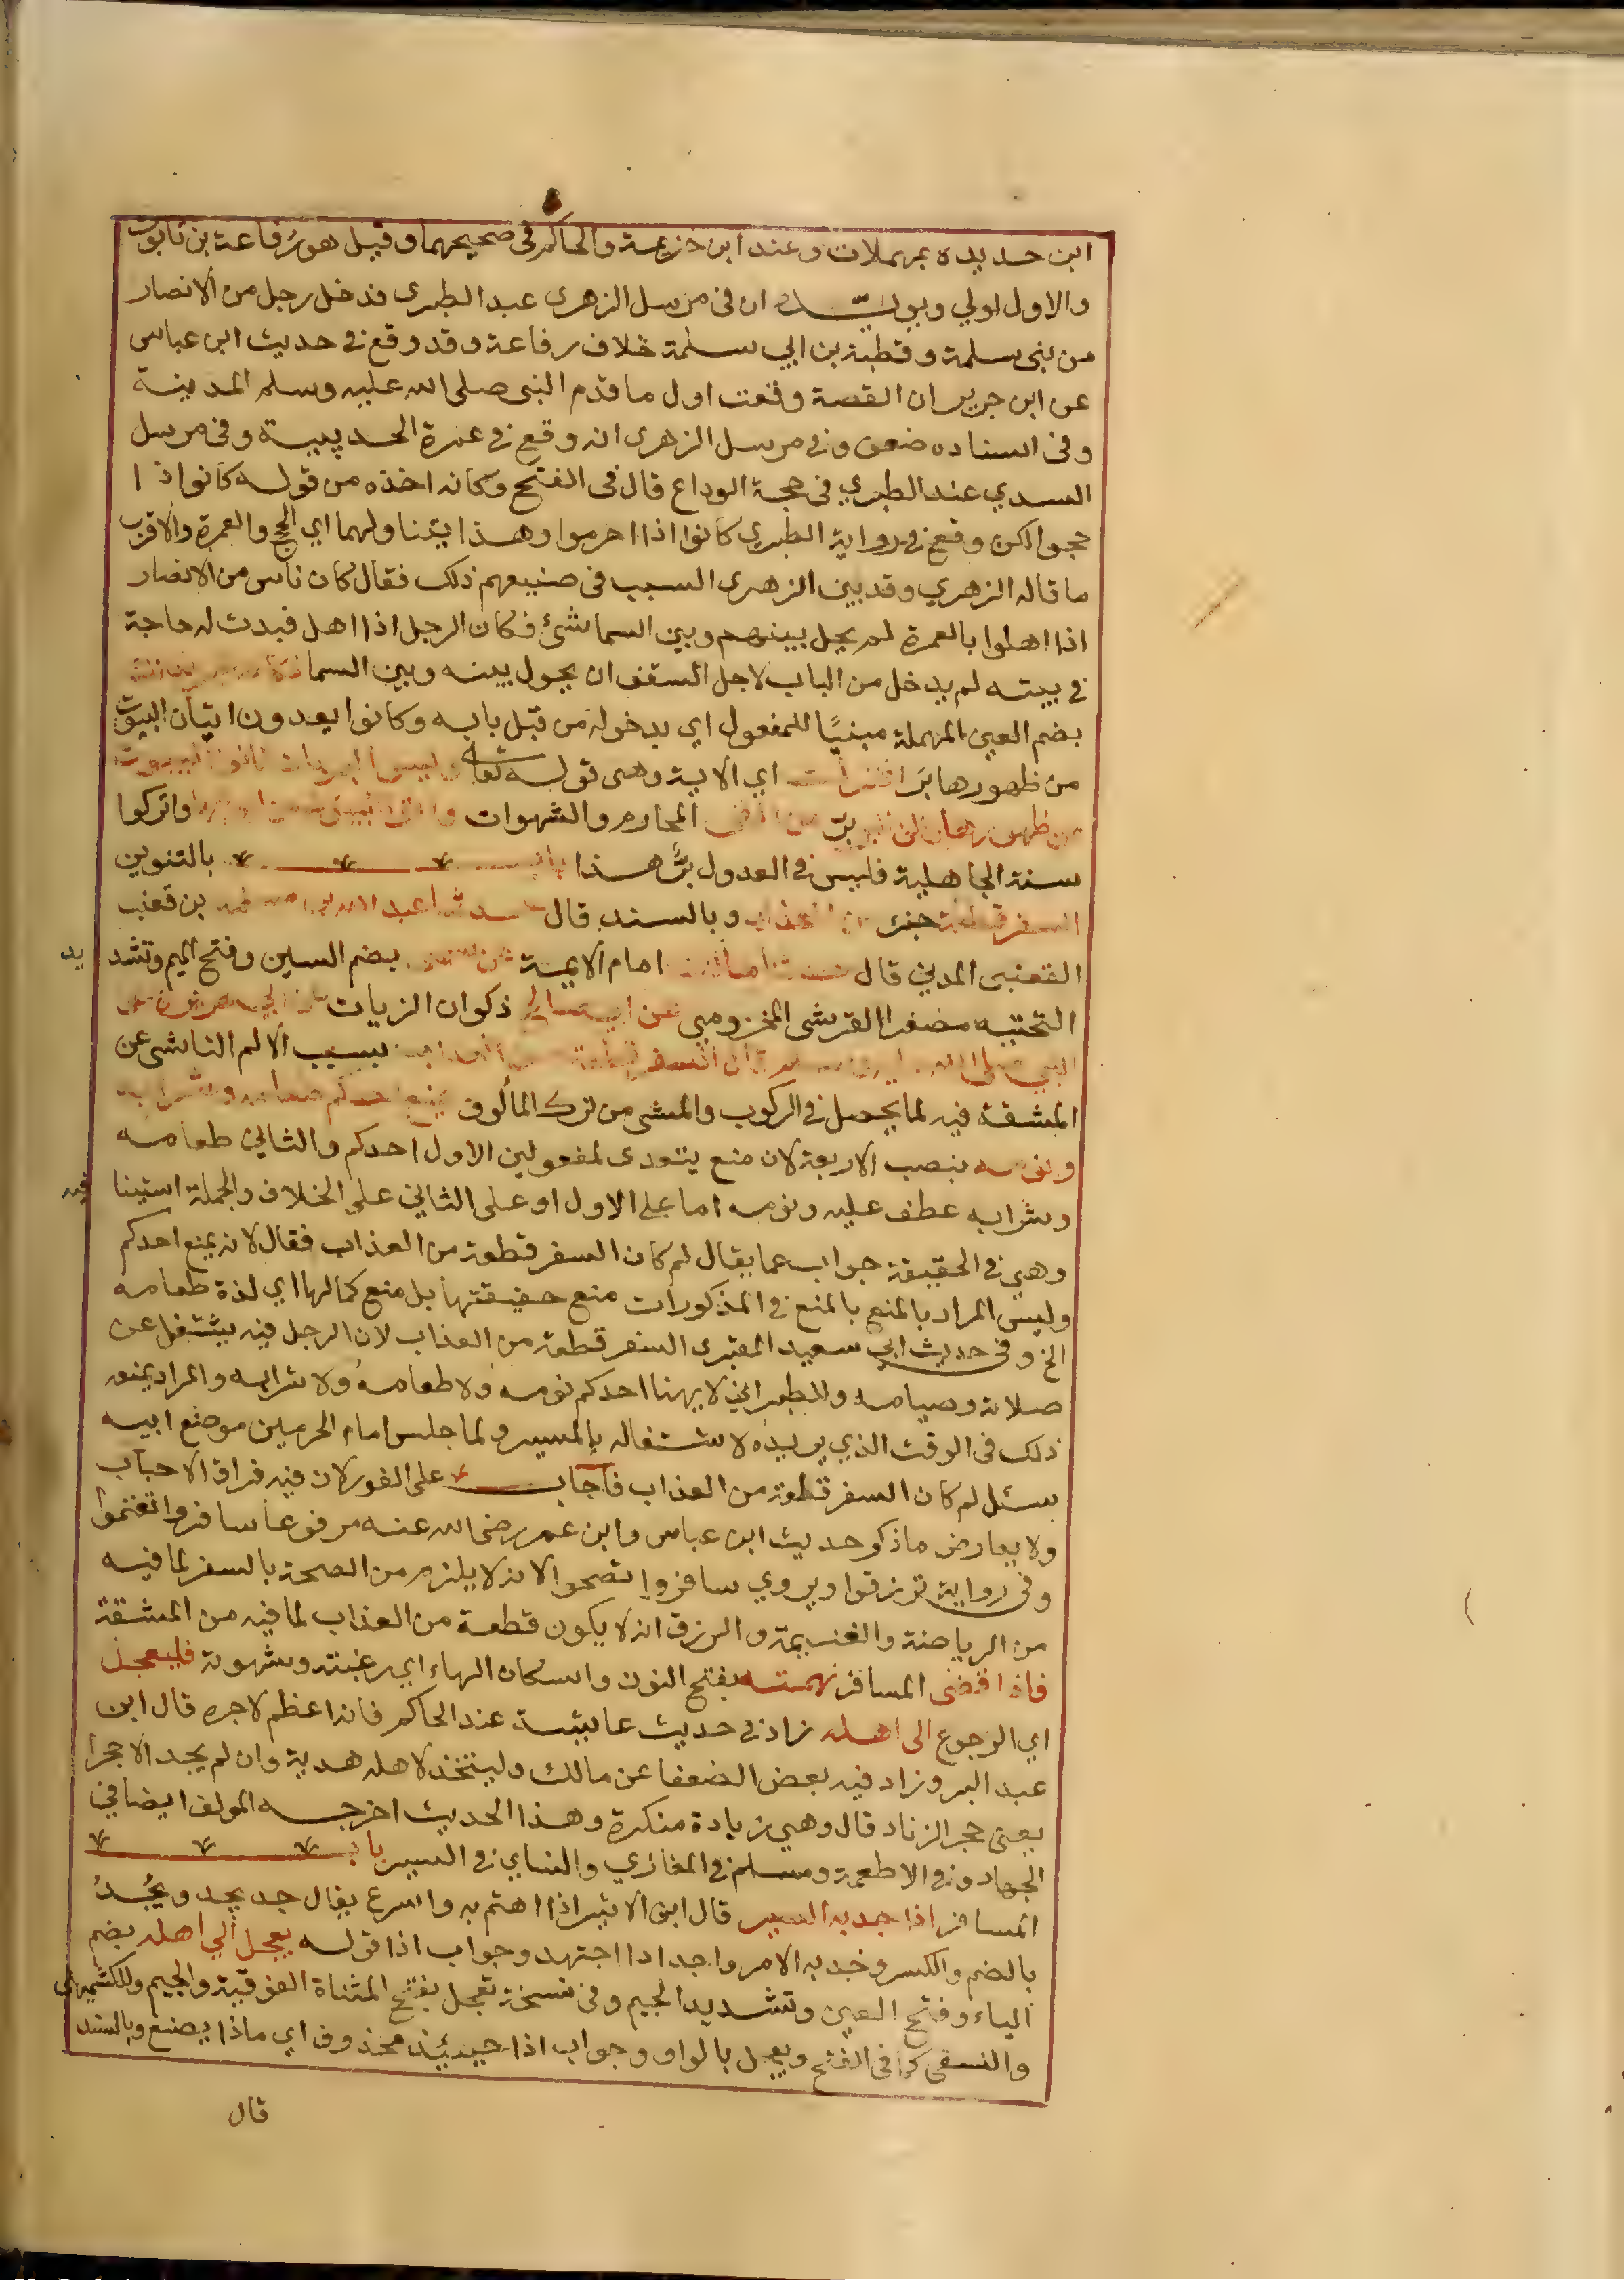 ابن حديدة بمهملات وعند ابن خزيمة والحاكم في صحيحهما وقيل هو رفاعة بن تابوت
والاول اولي ويويده ان في مرسل الزهري عبد الطبري فدخل رجل من الانصار
من بني سلمة وقطبة بن ابي سلمة خلاف رفاعة وقد وقع في حديث ابن عباس
عن ابن جرير ان القصة وقعت اول ما قدم النبي صلى الله عليه وسلم المدينة
وفي اسناده ضعف وفي مرسل الزهري انه وقع في عمرة الحديبية وفي مرسل
السدي عند الطبري في حجة الوداع قال في الفتح وكانه اخذه من قوله كانوا اذا
حجوا لكن وقع في رواية الطبري كانوا اذا احرموا وهذا يتناولهما اي الحج والعمرة والاقرب
ما قاله الزهري وقد بين الزهري السبب في صنيعهم ذلك فقال كان ناس من الانصار
اذا اهلوا بالعمرة لم يحل بينهم وبين السما شئ فكان الرجل اذا اهل فبدت له حاجة
في بيته لم يدخل من الباب لاجل السقف ان يحول بينه وبين السما
بضم العين المهملة مبنيا للمفعول اي بدخوله من قبل بابه وكانوا يعدون اتيان البيوت
من ظهورها برا فنزلت اي الاية وهي قوله تعالى وليس البر بان تاتوا البيوت
من ظهورها ولكن البر بر من اتقى المحارم والشهوات واتوا البيوت من ابوابها واتركوا
سنة الجاهلية فليس في العدول بر هذا باب بالتنوين
السفر قطعة جزء من العذاب وبالسند قال حدثنا عبد الله بن مسلمة بن قعنب
القعنبي المدني قال حدثنا مالك امام الايمة عن سمي بضم السين وفتح الميم وتشد يد
التحتيه مصغرا القرشي المخزومي عن ابي صالح ذكوان الزيات عن ابي هريرة عن
النبي صلى الله عليه وسلم قال السفر قطعة من العذاب بسبب الالم الناشي عن
المشقة فيه لما يحصل في الركوب والمشي من ترك المألوف يمنع احدكم طعامه وشرابه
ونومه بنصب الاربعة لان منع يتعدى لمفعولين الاول احدكم والثاني طعامه
وشرابه عطف عليه ونومه اما على الاول او على الثاني على الخلاف والجملة استينا فيه
وهي في الحقيقة جواب عما يقال لم كان السفر قطعة من العذاب فقال لانه يمنع احدكم
وليس المراد بالمنع بالمنع في المذكورات منع حقيقتها بل منع كمالها اي لذة طعامه
الخ وفي حديث ابي سعيد المقبري السفر قطعة من العذاب لان الرجل فيه يشتغل عن
صلاته وصيامه والطبراني لا يهنا احدكم نومه ولا طعامه ولا شرابه والمراد يمنعه
ذلك في الوقت الذي يريده لاشتغاله بالمسير ولما جلس امام الحرمين موضع ابيه
سئل لم كان السفر قطعة من العذاب فأجاب على الفور لان فيه فراق الاحباب
ولا يعارض ما ذكر حديث ابن عباس وابن عمر رضي الله عنه مرفوعا سافروا تغنموا
وفي رواية ترزقوا ويروي سافروا تصحوا لانه لا يلزم من الصحة بالسفر لما فيه
من الرياضة والغنيمة والرزق ان لا يكون قطعة من العذاب لما فيه من المشقة
فاذا قضى المسافر نهمته بفتح النون واسكان الهاء اي رغبته وشهوته فليعجل
اي الرجوع الى اهله زاد في حديث عايشة عند الحاكم فانه اعظم لاجره قال ابن
عبد البر وزاد فيه بعض الضعفا عن مالك وليتخذ لاهله هدية وان لم يجد الا حجرا
يعني حجر الزناد قال وهي زيادة منكرة وهذا الحديث اخرجه المولف ايضا في
الجهاد وفي الاطعمة ومسلم في المغازي والنساي في السير باب
المسافر اذا جد به السير قال ابن الاثير اذا اهتم به واسرع يقال جد يجد ويجد
بالضم والكسر وجد به الامر واجد اذا اجتهد وجواب اذا قوله يعجل الي اهله بضم
الياء وفتح العين وتشديد الجيم وفي نسخة تعجل بفتح المثناة الفوقية والجيم وللكشميهني
والنسفي كما في الفتح ويعجل بالواو وجواب اذا حينئذ محذوف اي ماذا يصنع وبالسند
قال